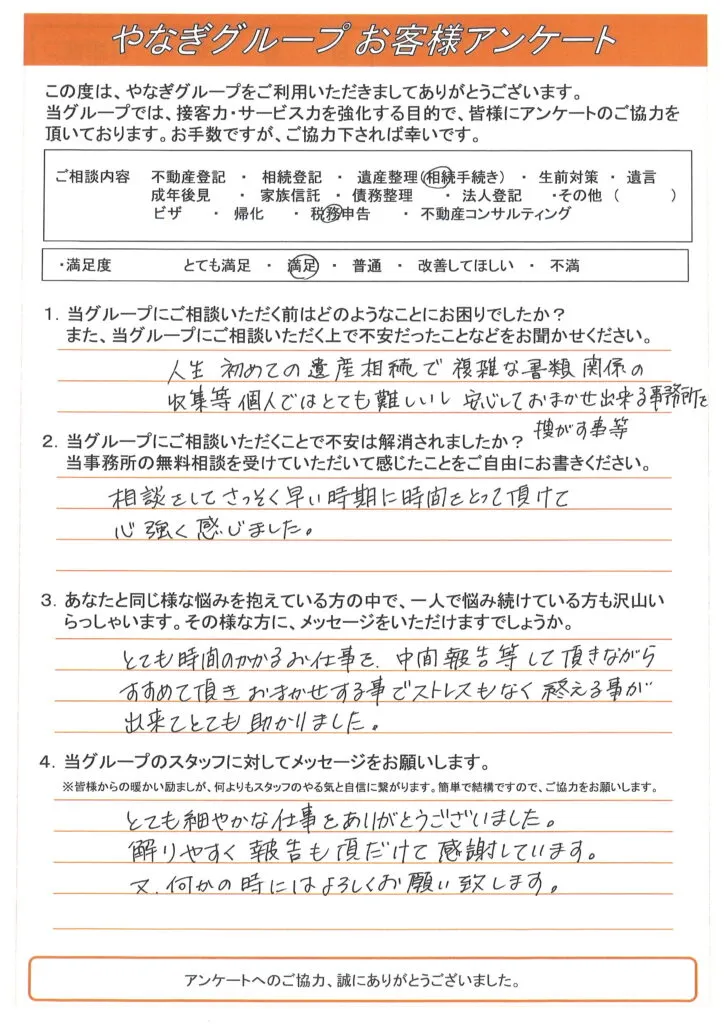 やなぎグループ お客様アンケート
この度は、やなぎグループをご利用いただきましてありがとうございます。
当グループでは、接客力・サービス力を強化する目的で、皆様にアンケートのご協力を
頂いております。お手数ですが、ご協力下されば幸いです。
ご相談内容 不動産登記 ・ 相続登記 ・ 遺産整理(相続手続き) ・ 生前対策 ・ 遺言
成年後見 ・ 家族信託 ・ 債務整理 ・ 法人登記 ・その他 ( )
ビザ ・ 帰化 ・ 税務申告 ・ 不動産コンサルティング
・満足度 とても満足 ・ 満足 ・ 普通 ・ 改善してほしい ・ 不満
1. 当グループにご相談いただく前はどのようなことにお困りでしたか?
また、当グループにご相談いただく上で不安だったことなどをお聞かせください。
人生 初めての遺産相続で 複雑な書類関係の
収集等 個人ではとても難しいし 安心しておまかせ出来る事務所を
捜がす事等
2. 当グループにご相談いただくことで不安は解消されましたか?
当事務所の無料相談を受けていただいて感じたことをご自由にお書きください。
相談をしてさっそく早い時期に時間をとって頂けて
心強く感じました。
3. あなたと同じ様な悩みを抱えている方の中で、一人で悩み続けている方も沢山い
らっしゃいます。その様な方に、メッセージをいただけますでしょうか。
とても時間のかかるお仕事を、中間報告等して頂きながら
すすめて頂き おまかせする事でストレスもなく 終える事が
出来てとても助かりました。
4. 当グループのスタッフに対してメッセージをお願いします。
※皆様からの暖かい励ましが、何よりもスタッフのやる気と自信に繋がります。簡単で結構ですので、ご協力をお願いします。
とても細やかな仕事をありがとうございました。
解りやすく 報告も頂だけて感謝しています。
又、何かの時にはよろしくお願い致します。
アンケートへのご協力、誠にありがとうございました。